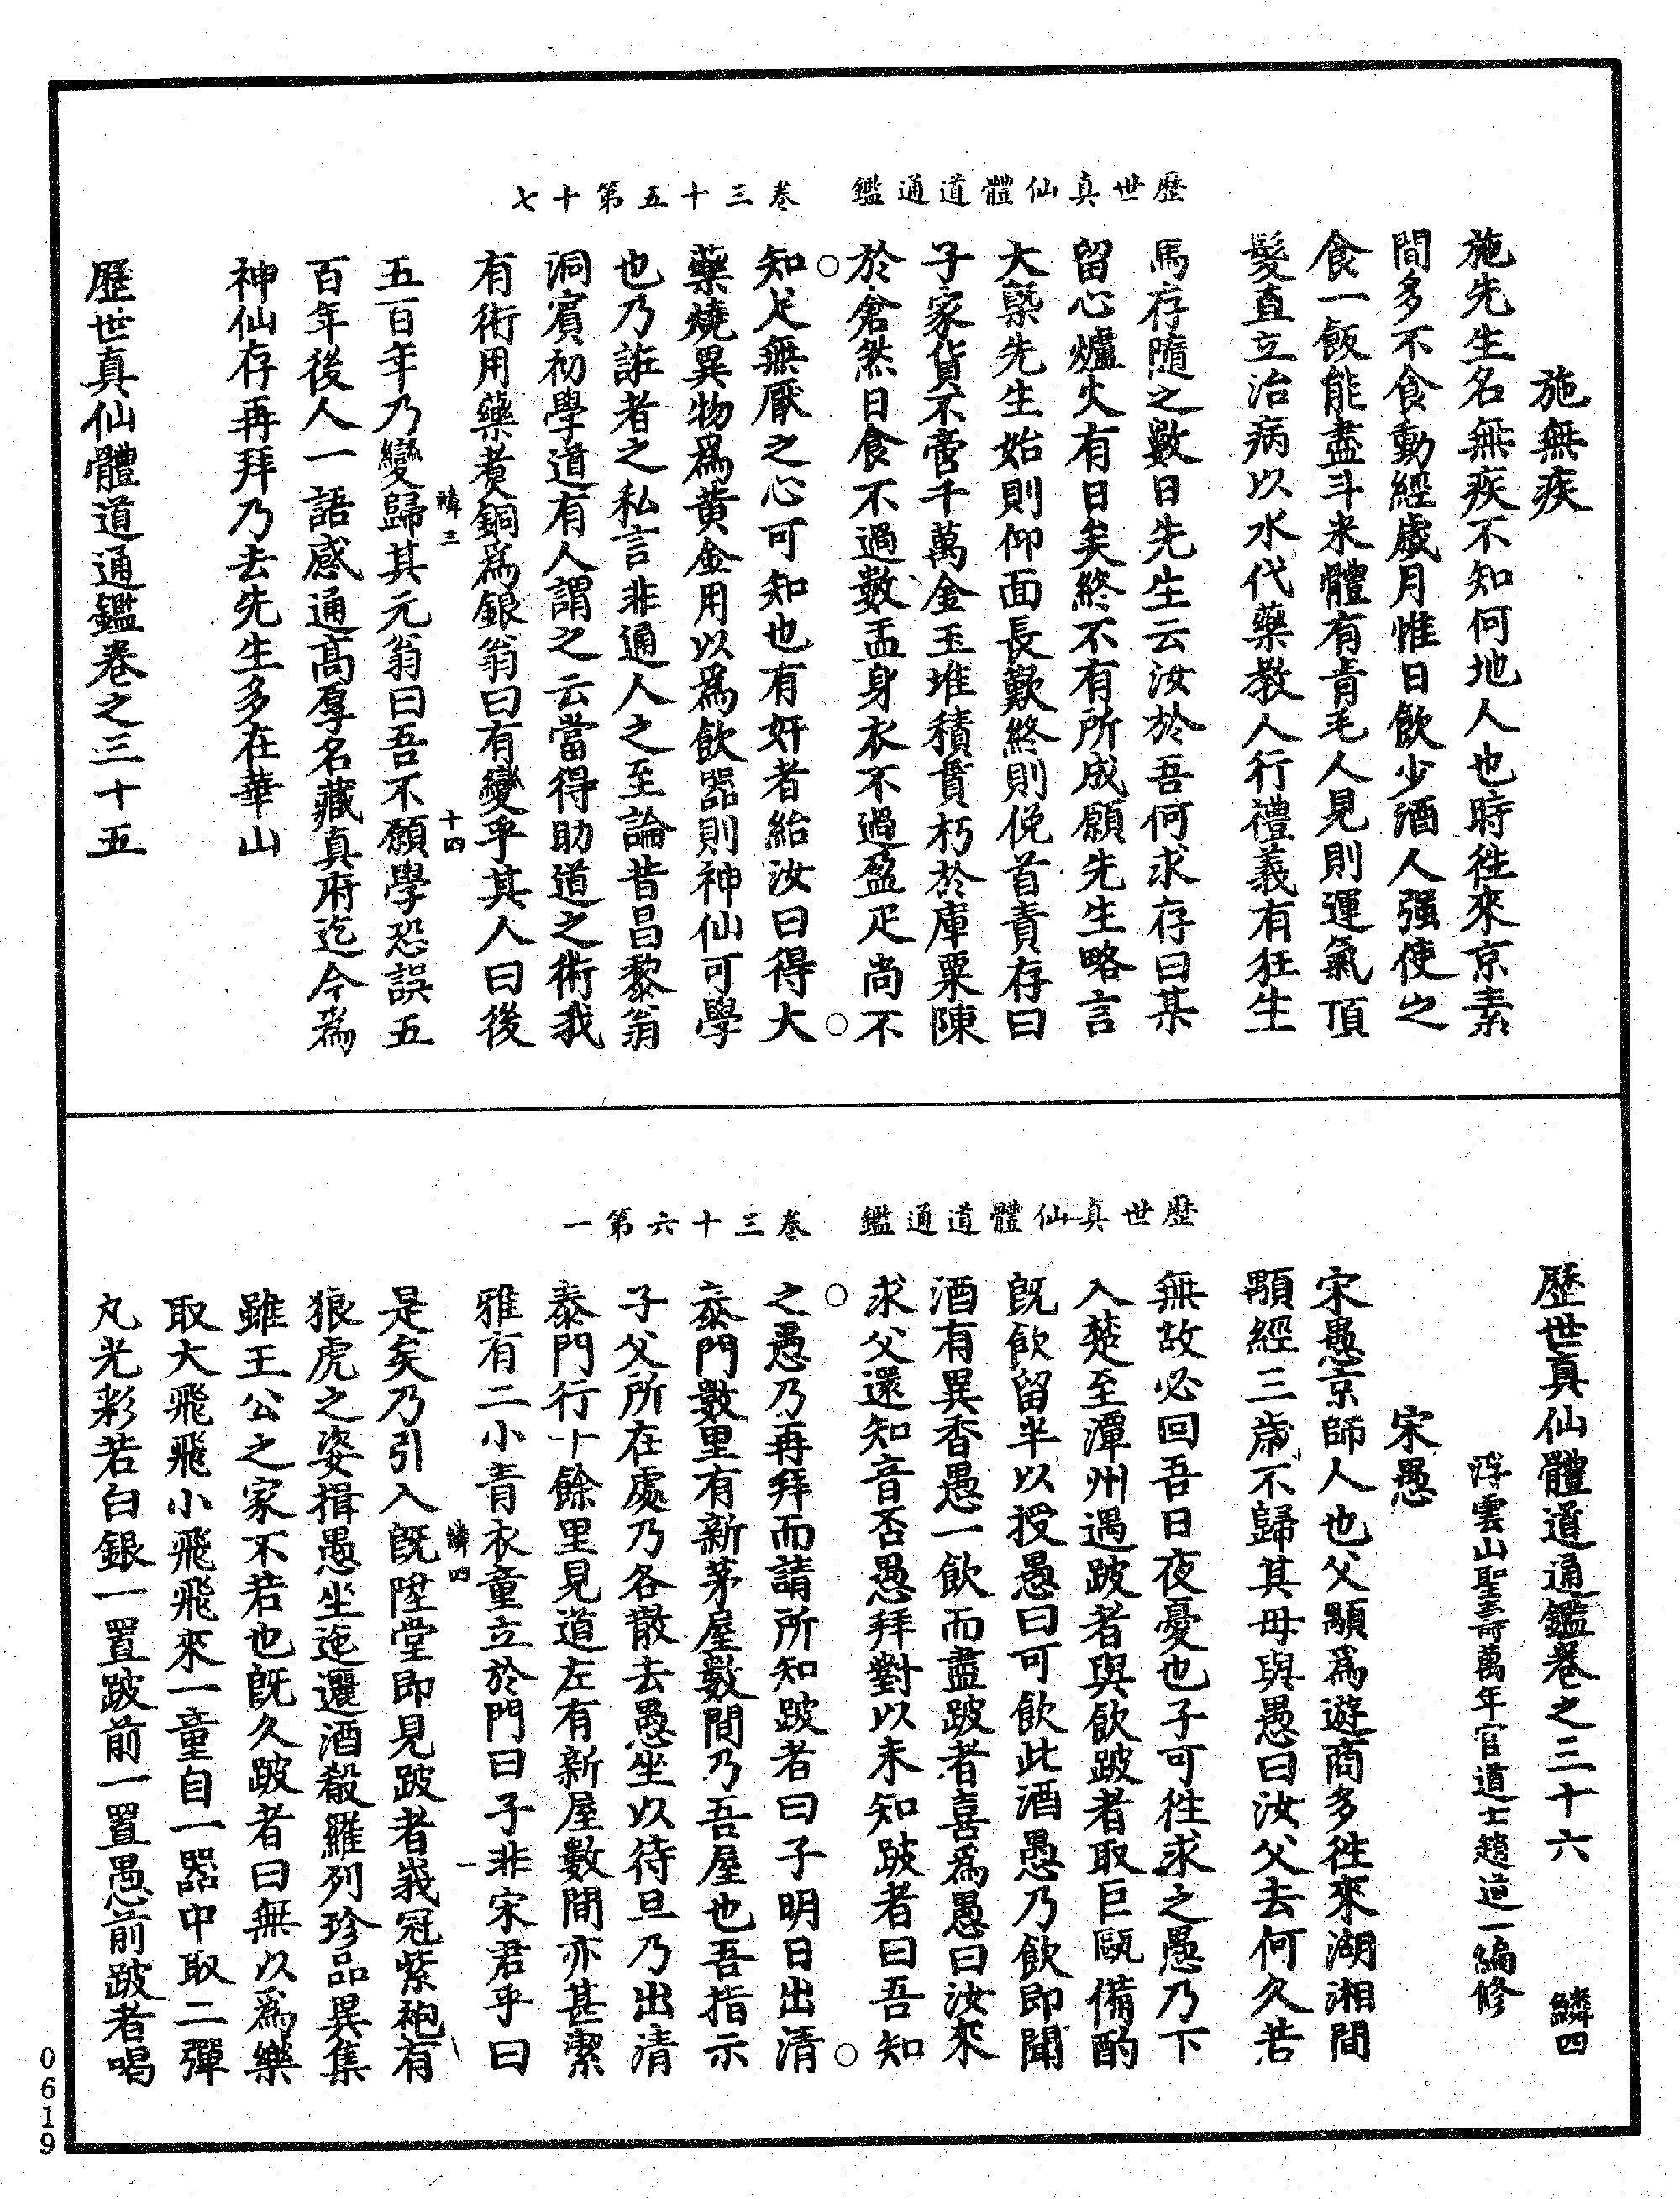 歷世真仙體道通鑑　卷三十五第十七
施無疾
施先生名無疾不知何地人也時徃來京素
間多不食動經歲月惟日飲少酒人强使之
食一飯能盡斗米體有青毛人見則運氣頂
髮直立治病以水代藥教人行禮義有狂生
馬存隨之數日先生云汝於吾何求存曰某
留心爐火有日矣終不有所成願先生略言
大槩先生始則仰面長歎終則俛首責存曰
子家貨不啻千萬金玉堆積貫朽於庫粟陳
於倉然日食不過數盂身衣不過盈疋尚不
知足無厭之心可知也有奸者紿汝曰得大
藥燒異物爲黄金用以爲飲器則神仙可學
也乃誑者之私言非通人之至論昔昌黎翁
洞賔初學道有人謂之云當得助道之術我
有術用藥煑銅爲銀翁曰有變乎其人曰後
鱗三　十四
五百年乃變歸其元翁曰吾不願學恐誤五
百年後人一語感通高厚名藏真府迄今爲
神仙存再拜乃去先生多在華山
歷世真仙體道通鑑卷之三十五
歷世真仙體道通鑑　卷三十六第一
歷世真仙體道通鑑卷之三十六　鱗四
浮雲山聖壽萬年宫道士趙道一編修
宋愚
宋愚京師人也父顒爲遊商多徃來湖湘間
顒經三歲不歸其母與愚曰汝父去何久若
無故必回吾日夜憂也子可徃求之愚乃下
入楚至潭州遇跛者與飲跛者取巨甌備酌
旣飲留半以授愚曰可飲此酒愚乃飲即聞
酒有異香愚一飲而盡跛者喜爲愚曰汝來
求父還知音否愚拜對以未知跛者曰吾知
之愚乃再拜而請所知跛者曰子明日出清
泰門數里有新茅屋數間乃吾屋也吾指示
子父所在處乃各散去愚坐以待旦乃出清
泰門行十餘里見道左有新屋數間亦甚潔
雅有二小青衣童立於門曰子非宋君乎曰
鱗四　一
是矣乃引入旣陞堂即見跛者峩冠紫袍有
狼虎之姿揖愚坐迤邐酒殽羅列珍品異集
雖王公之家不若也旣久跛者曰無以爲樂
取大飛飛小飛飛來一童自一器中取二彈
丸光彩若白銀一置跛前一置愚前跛者喝
0619